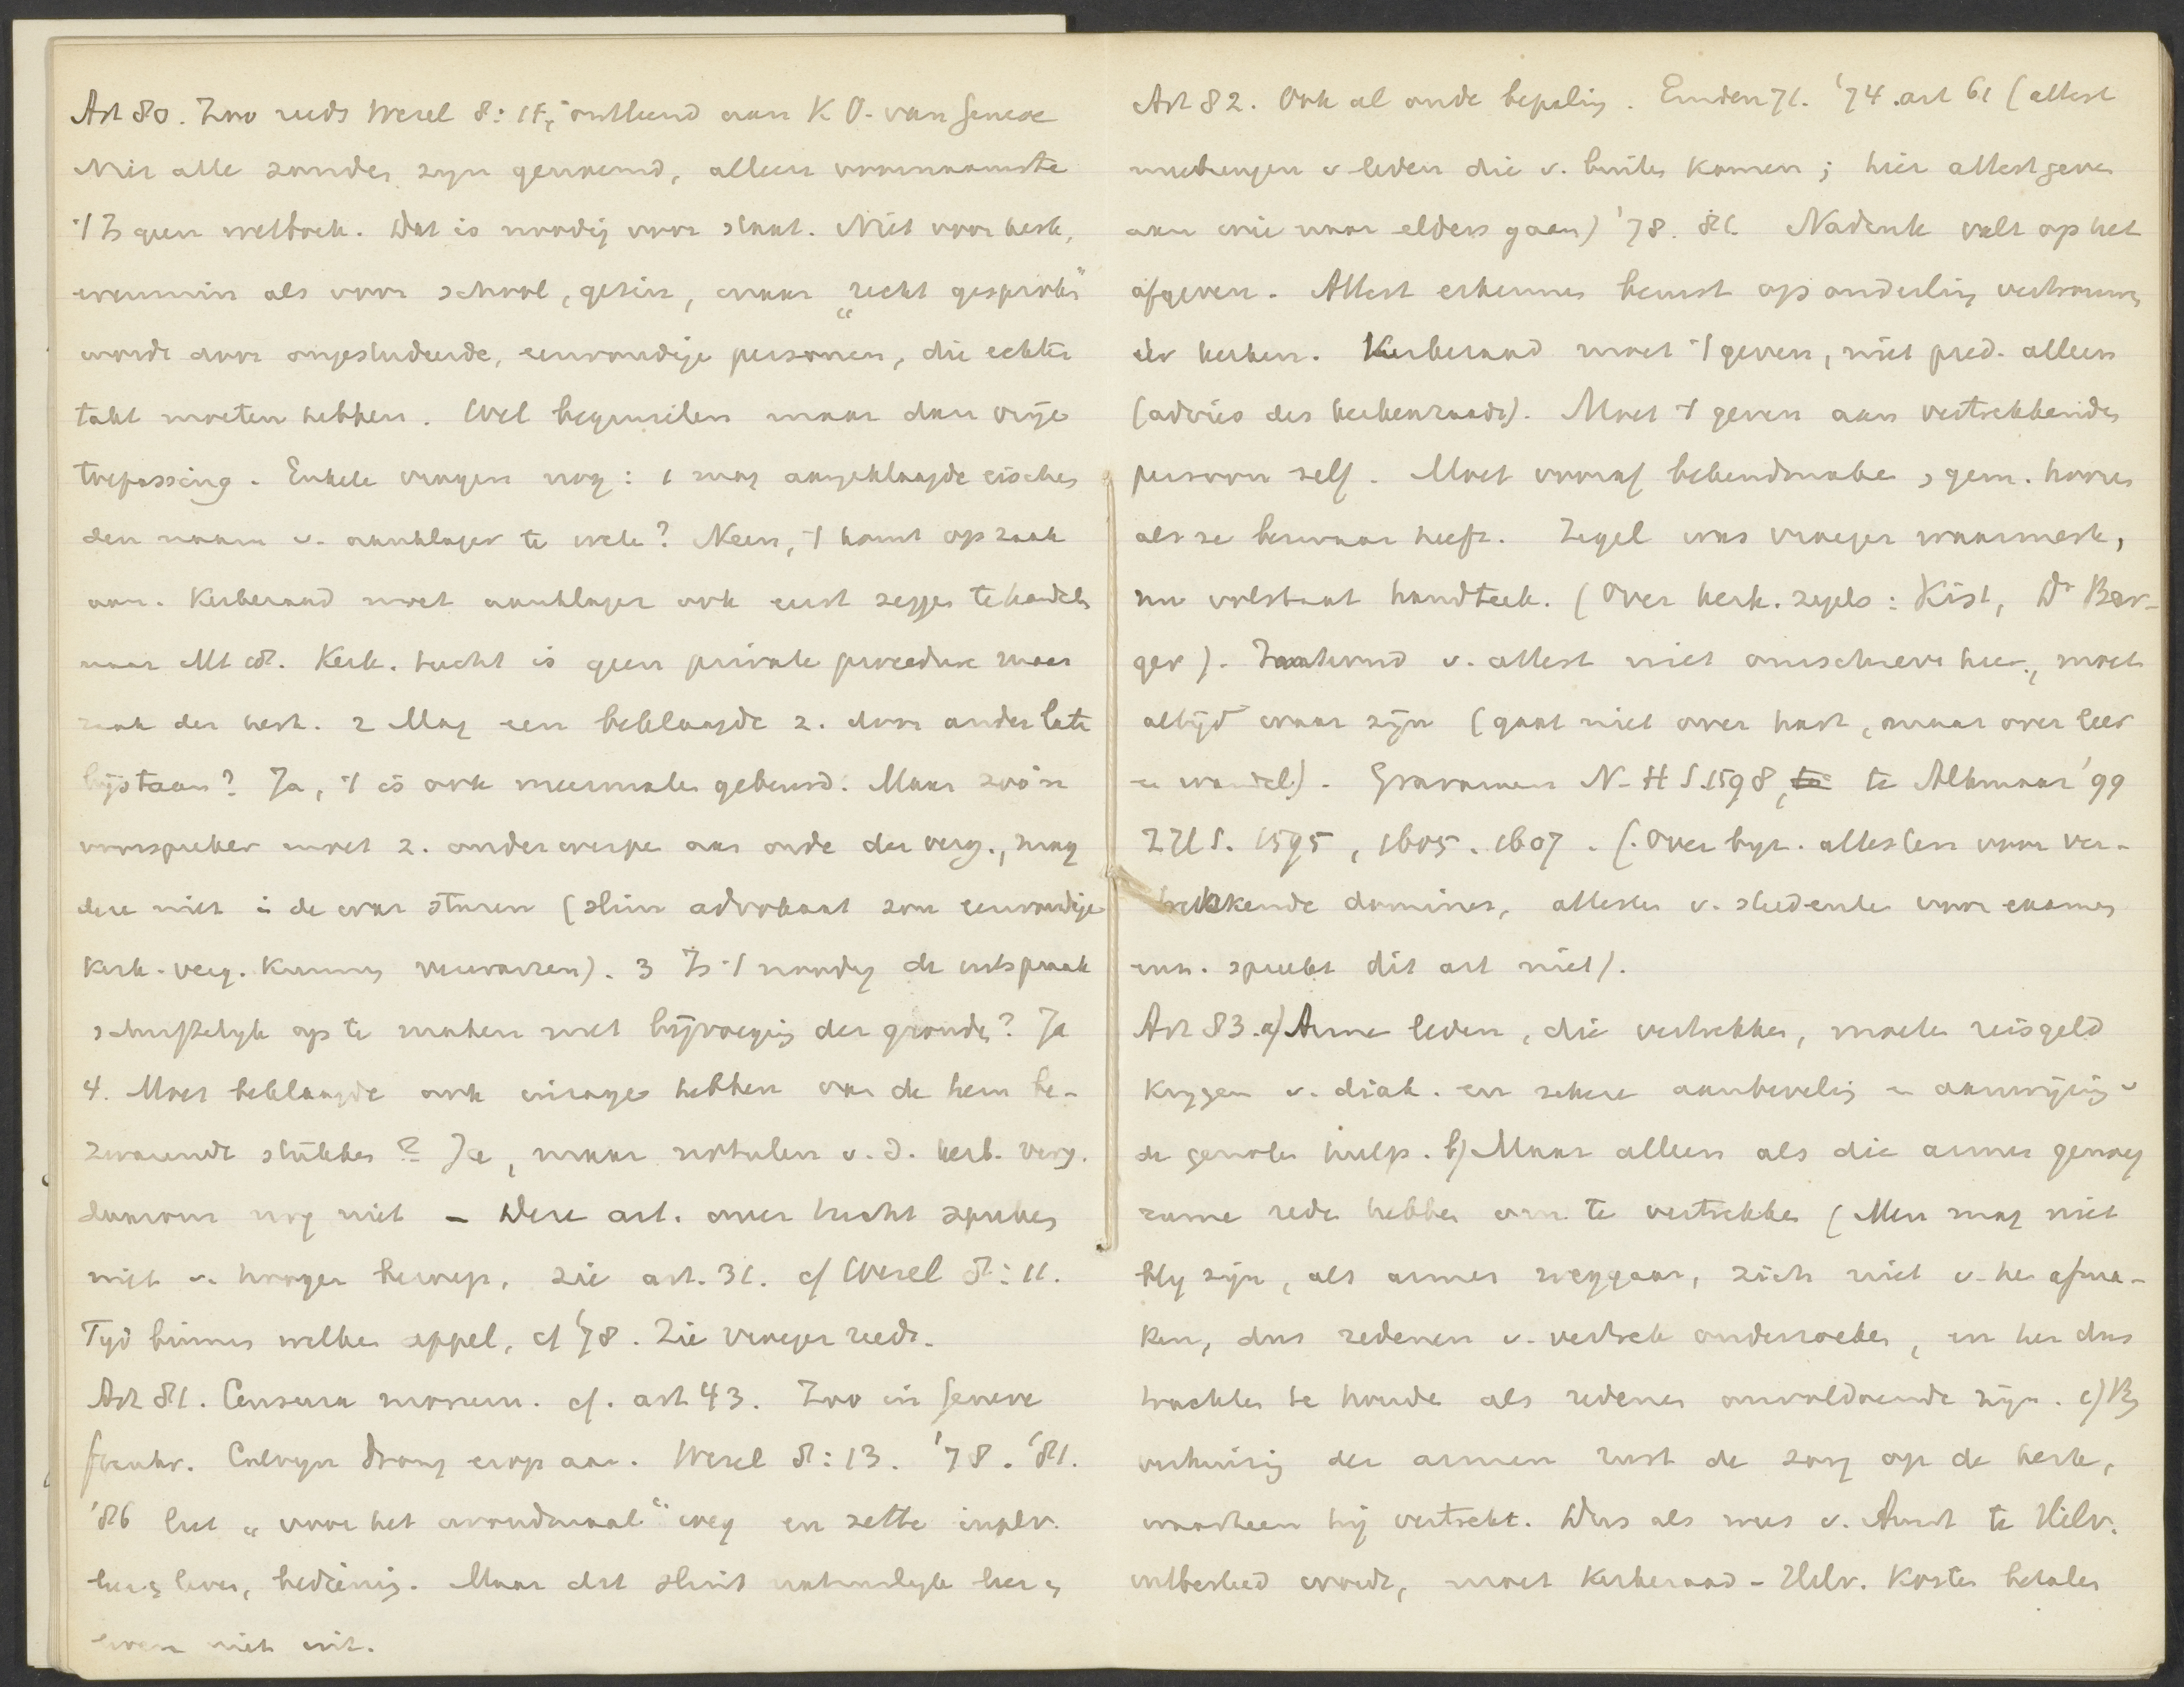 Art 80. Zoo reeds Wesel 8:15, ontleend aan K O. van Geneve
Niet alle zonden zyn genoemd, alleen voornaamste
't Is geen wetboek. Dat is noodig voor staat. Niet voor kerk,
evenmin als voor school, gezin, waar „recht gesproken"
wordt door ongestudeerde, eenvoudige personen, die echter
takt moeten hebben. Wel beginselen maar dan vrije
toepassing. Enkele vragen nog: 1 mag aangeklaagde eischen
den naam v. aanklager te weten? Neen, 't komt op zaak
aan. Kerkeraad moet aanklager ook eerst zeggen te handelen
naar Mt 18. Kerk. tucht is geen private procedure maar
zaak der kerk. 2 Mag een beklaagde z. door ander laten
bijstaan? Ja, 't is ook meermalen gebeurd. Maar zoo'n
voorspreker moet z. onderwerpen aan orde der verg., mag
deze niet i de war sturen (slim advokaat zou eenvoudige
kerk. verg. kunnen verwarren). 3 Is 't noodig de uitspraak
schriftelyk op te maken met bijvoeging der gronden? Ja
4. Moet beklaagde ook inzage hebben van de hem be-
zwarende stukken? Ja, maar notulen v. d. kerk. verg.
daarom nog niet – Deze art. over tucht spreken
niet v. hooger beroep, zie art. 31. cf Wesel 8:11.
Tyd binnen welken appel, cf '78. Zie vroeger reeds.
Art 81. Censura morum. cf. art 43. Zoo in Geneve
Frankr. Calvyn drong erop aan. Wesel 8:13. '78. '81.
'86 liet „voor het avondmaal" weg en zette inplv.
leer & leven, bediening. Maar dat sluit natuurlyk leer &
leven niet uit.
Art 82. Ook al oude bepaling. Emden 71. '74. art 61 (attest
meebrengen v leden die v. buiten komen; hier attest geven
aan wie naar elders gaan) '78. 81. Nadruk valt op het
afgeven. Attest erkennen berust op onderling vertrouwen
der kerken. Kerkeraad moet 't geven, niet pred. alleen
(advies des kerkenraads). Moet 't geven aan vertrekkenden
persoon zelf. Moet vooraf bekendmaken, gem. hooren
als ze bezwaar heeft. Zegel was vroeger waarmerk,
nu volstaat handteek. (Over kerk. zegels: Kist, Dr Ber-
ger). Inhoud v. attest niet omschreven hier, moet
altijd waar zijn (gaat niet over hart, maar over leer
en wandel). Gravamen N-H S. 1598, te te Alkmaar '99
ZH S. 1595, 1605. 1607. (Over byz. attesten voor ver-
trekkende dominees, attesten v. studenten voor examen
enz. spreekt dit art niet).
Art 83. a) Arme leden, die vertrekken, moeten reisgeld
krygen v. diak. en zekere aanbeveling en aanwijzing v
de genoten hulp. b) Maar alleen als die armen genoeg
zame reden hebben om te vertrekken (Men mag niet
bly zijn, als armen weggaan, zich niet v. hen afma-
ken, dus redenen v. vertrek onderzoeken, en hen dus
trachten te houden als redenen onvoldoende zijn. c) By
verhuizing der armen rust de zorg op de kerk,
waarheen hij vertrekt. Dus als wees v. Amst te Hilv.
uitbesteed wordt, moet kerkeraad - Hilv. kosten betalen